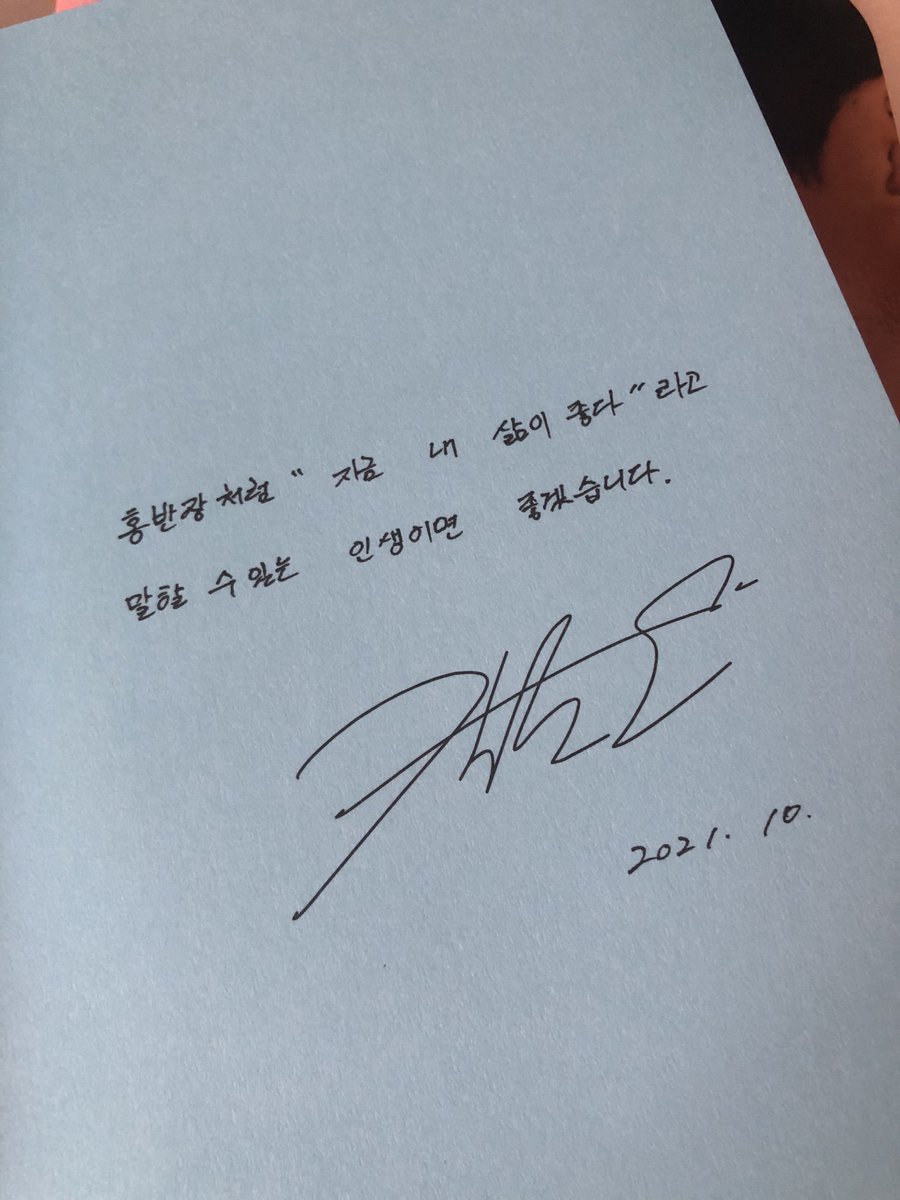 홍반장처럼 " 지금 내 삶이 좋다 " 라고
말할 수 있는 인생이면 좋겠습니다.
2021. 10.